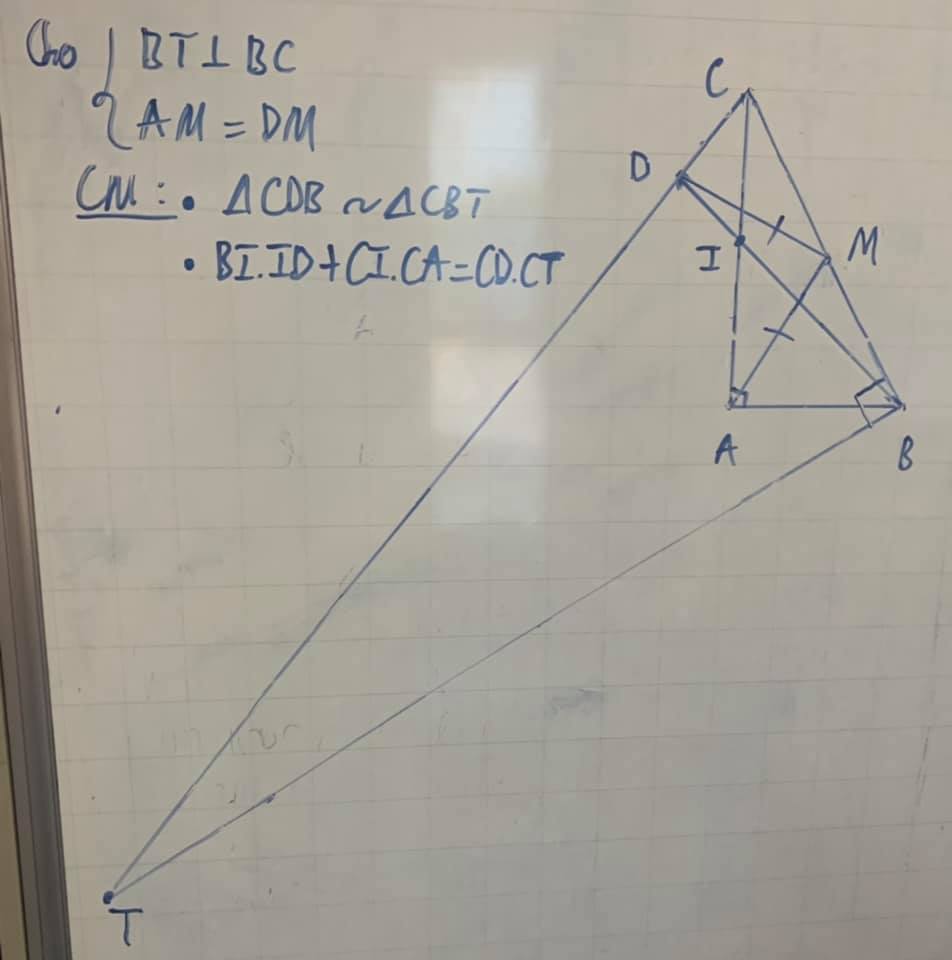 Cho { BT⊥BC
AM = DM
CM: • ΔCDB ~ ΔCBT
• BI.ID+CI.CA=CD.CT
C
D
M
I
A
B
T